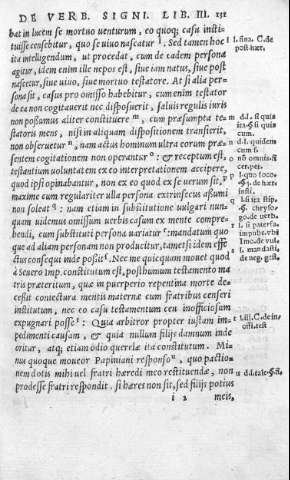 DE VERB. SIGNI. LIB. III. 131
bat in lucem se mortuo uenturum, eo quoq; casu insti-
tuisse censebitur, quo se uiuo nascatur l. Sed tamen hoc
ita intelligendum, ut procedat, cum de eadem persona
agitur, idem enim ille nepos est, siue iam natus, siue post
nascetur, siue uiuo, siue mortuo testatore. At si alia per-
sona sit, casus pro omisso habebitur, cum enim testator
de ea non cogitauerit nec disposuerit, saluis regulis iuris
non possumus aliter constituere m, cum præsumpta te-
statoris mens, nisi in aliquam dispositionem transierit,
non obseruetur n, nam actus hominum ultra eorum præ-
sentem cogitationem non operantur o: & receptum est,
testantium uoluntatem ex eo interpretationem accipere,
quod ipsi opinabantur, non ex eo quod ex se uerum sit, p
maxime cum regulariter illa persona extrinsecus assumi
non soleat q: nam etiam in substitutione uulgari nun-
quam uidemus omissum uerbis casum ex mente compre-
hendi, cum substituti persona uariatur r: mandatum quo
que ad aliam personam non producitur, tametsi idem effe
ctus consequi inde possit s. Nec me quicquam mouet quod
à Seuero Imp. constitutum est, posthumum testamento ma
tris præteritum, quæ in puerperio repentina morte de-
cessit coniectura mentis maternæ cum fratribus censeri
institutum, nec eo casu testamentum ceu inofficiosum
expugnari posse t: Quia arbitror propter iustam im-
pedimenti causam, & quia nullum filijs damnum inde
oritur, atq; etiam odio querelæ ita constitutum. Mi-
nus quoque moueor Papiniani responso u, quo pactio-
nem dotis mihi uel fratri hæredi meo restituendæ, non
prodesse fratri respondit. si hæres non sit, sed filijs potius
i 2 meis,
l l. fina. C. de
post. hær.
m d. l. si quis
n d. l. quidem
cum f.